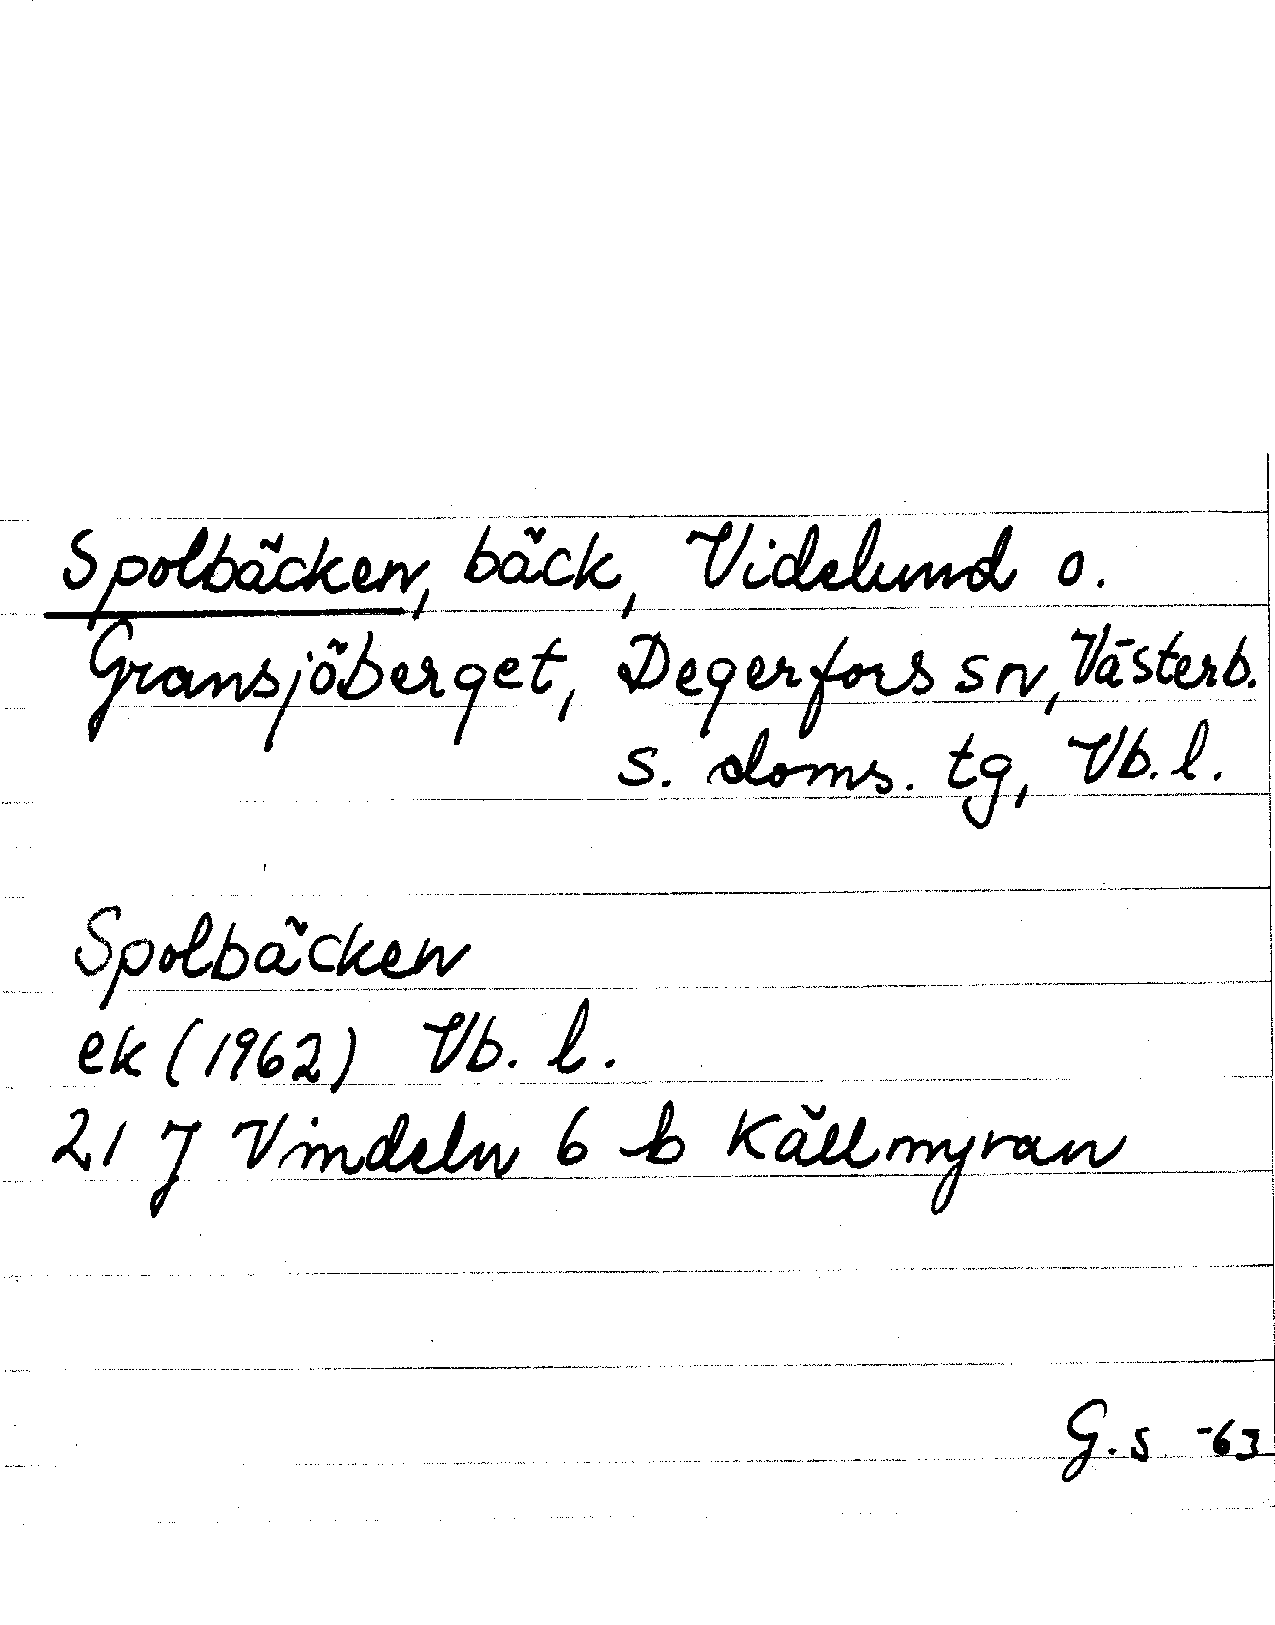 Spolbäcken, bäck, Videlund o.
Gransjöberget, Degerfors sn, Västerb.
s. doms. tg, Vb. l.
Spolbäcken
ek (1962) Vb. l.
21 J Vindeln 6 b Källmyran
G.S -63